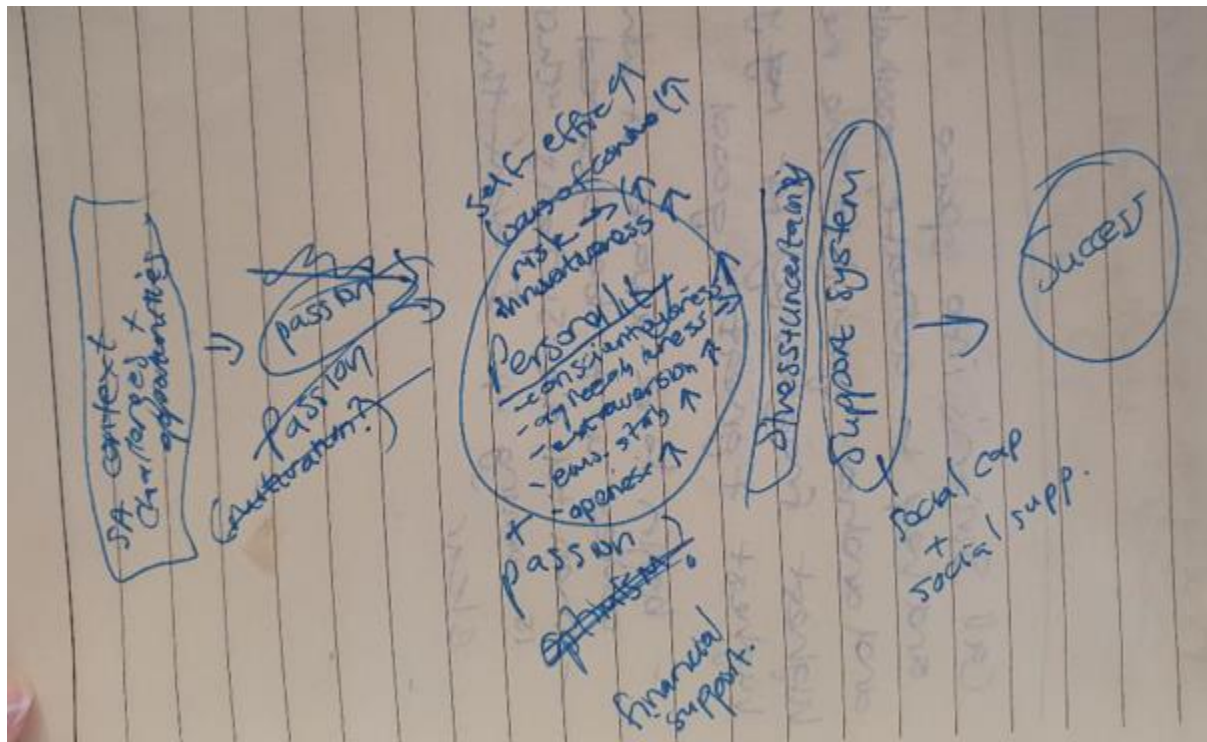 SA context
Challenges +
opportunities
passion
Passion
Self-effic ↑
Locus of control (↑
risk → (↑
Personality
- conscientiousness ↑
- extraversion ↑
- emo. stab ↑
- openness ↑
+
passion
financial
support.
Stress + uncertainty
Support System
Social cap
+
social supp.
Success